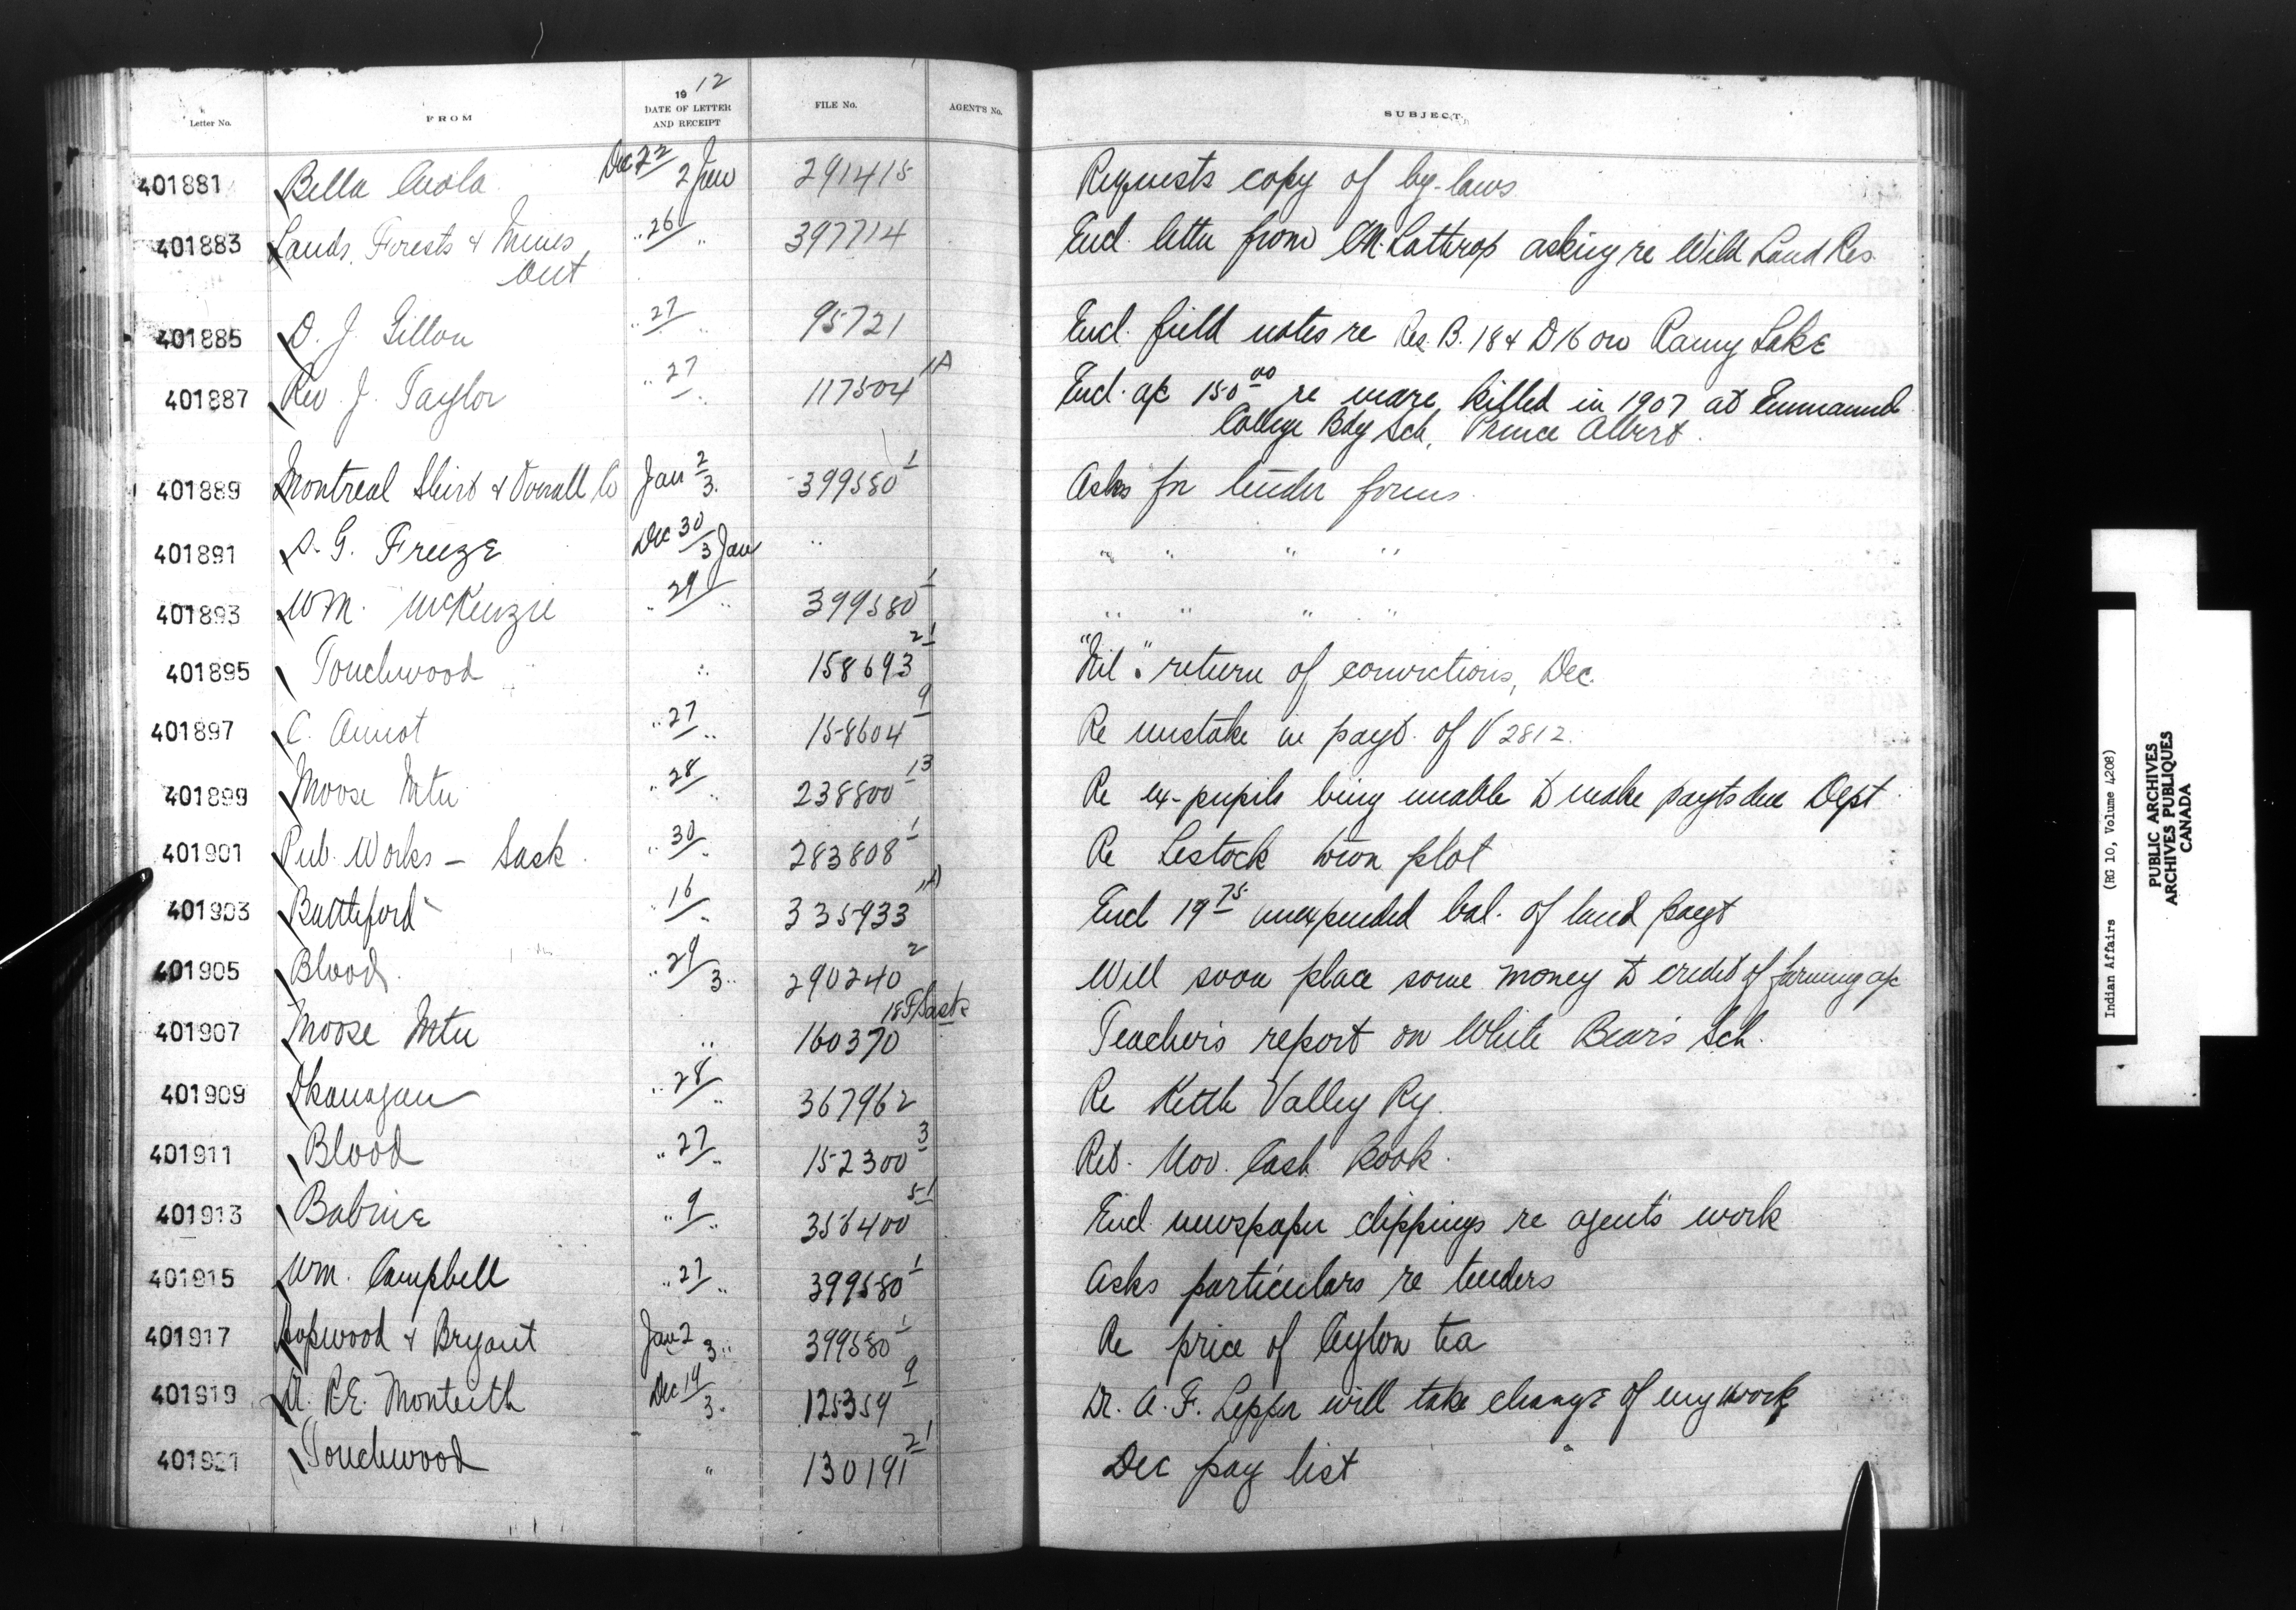 1912
Letter No. FROM DATE OF LETTER AND RECEIPT FILE No. AGENT'S No. SUBJECT
401881 Bella Coola Dec 22 2 Jan 291415 Requests copy of by-laws
401883 Lands, Forests & Mines " 26 " 397714 Encl. letter from Lathrop asking re Wild Land Res.
Ont
401885 D. J. Gillon " 27 " 95721 Encl. field notes re Res. B. 18 & D 16 on Rainy Lake
401887 Rev. J. Taylor " 27 " 117504 1A Encl. a/c 150.00 re mare killed in 1907 at Emmanuel
College Bdg Sch, Prince Albert.
401889 Montreal Shirt & Overall Co Jan 2 3. 399580 1 Asks for tender forms
401891 D. G. Freeze Dec 30 3 Jan " " " " "
401893 Wm. McKenzie " 29 " 399580 1 " " " "
401895 Touchwood " 158693 21 "Nil" return of convictions, Dec.
401897 C. " 27 " 158604 9 Re mistake in payt. of V 2812.
401899 Moose Mtn " 28 " 238800 13 Re ex-pupils being unable to make payts due Dept
401901 Pub. Works - Sask. " 30 " 283808 1 Re Lestock town plot
401903 Battleford " 16 " 335933 1A Encl 19 75 unexpended bal. of land payt
401905 Blood " 29 3 " 290240 2 Will soon place some money to credit of farming a/c
401907 Moose Mtn " 160370 Sask Teacher's report on White Bear's Sch.
401909 Okanagan " 28 " 367962 Re Kettle Valley Ry.
401911 Blood " 27 " 152300 3 Ret. Nov. Cash Book.
401913 Babine " 9 " 356400 51 Encl newspaper clippings re agents' work
401915 Wm. Campbell " 27 " 399580 1 Asks particulars re tenders
401917 Hopwood & Bryant Jan 2 3 " 399580 1 Re price of Ceylon tea
401919 A. R.E. Monteith Dec 19 3 " 125359 9 Dr. A. F. Lepper will take charge of my work
401921 Touchwood " 130191 21 Dec pay list
Indian Affairs (RG 10, Volume 4208)
PUBLIC ARCHIVES
ARCHIVES PUBLIQUES
CANADA